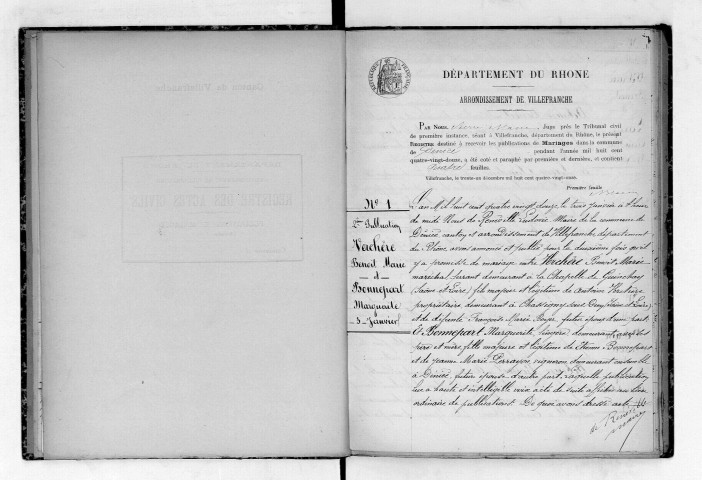 DÉPARTEMENT DU RHONE
ARRONDISSEMENT DE VILLEFRANCHE
PAR NOUS, Juge près le Tribunal civil
de première instance, séant à Villefranche, département du Rhône, le présent
REGISTRE destiné à recevoir les publications de Mariages dans la commune
de Denicé pendant l'année mil huit cent
quatre-vingt-douze, a été coté et paraphé par première et dernière, et contient
quatre feuilles.
Villefranche, le trente-un décembre mil huit cent quatre-vingt-onze.
Première feuille
No 1
2e Publication
Vachère
Benoit Marie
et
Bonnepart
Marguerite
3 Janvier
L'an Mil huit cent quatre vingt douze le trois Janvier à l'heure
de midi Nous de Renéville Ludovic Maire de la commune de
Denicé canton et arrondissement de Villefranche, département
du Rhône, avons annoncé et publié pour la deuxième fois qu'il
y a promesse de mariage entre Vachère Benoit Marie
maréchal ferrant demeurant à la Chapelle de Guinchay
(Saône et Loire) fils majeur et légitime de Antoine Vachère
propriétaire demeurant à Chassigny sous Dun (Saône et Loire)
et de défunte Françoise Marie futur époux d'une part
Et Bonnepart Marguerite, lingère demeurant avec ses
père et mère fille majeure et légitime de Bonnepart
et de Jeanne Marie vigneron demeurant ensemble
à Denicé, future épouse d'autre part, laquelle publication
lue à haute et intelligible voix a été de suite affichée au lieu
ordinaire de publications. De quoi avons dressé acte
de Renév
maire